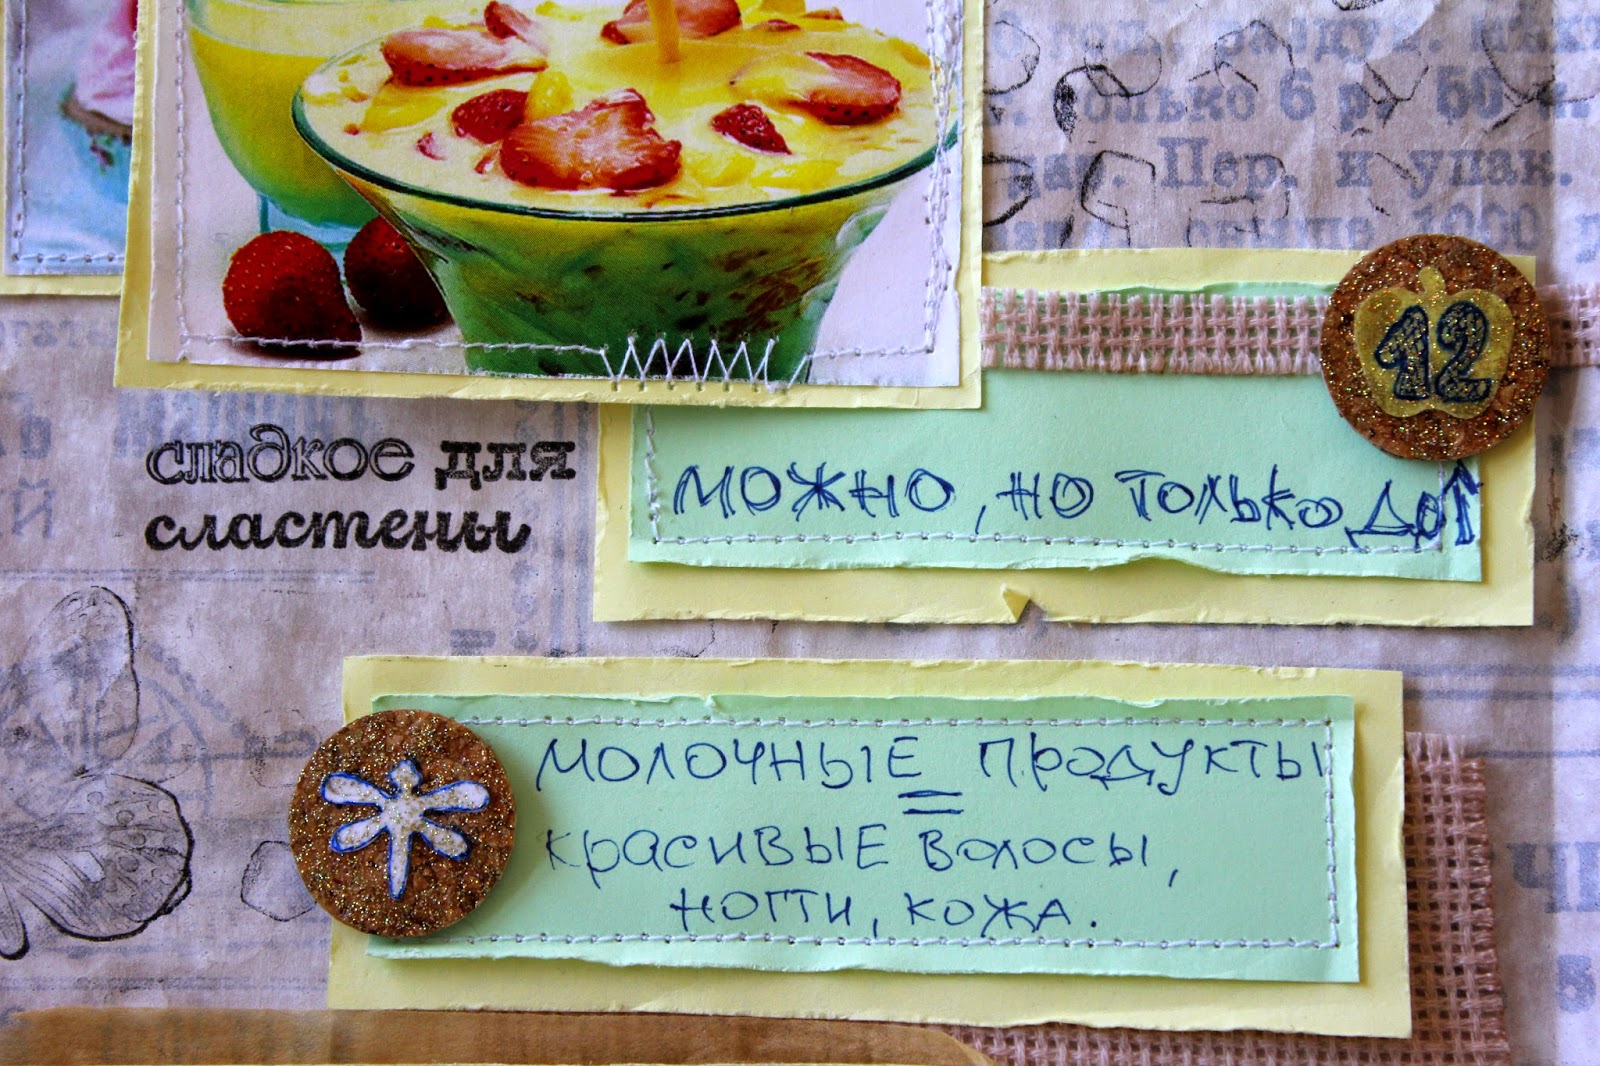 только 6 р. 50 к.
Пер. и упак.
12
сладкое для
сластены
можно, но только до↑
молочные продукты
=
красивые волосы,
ногти, кожа.